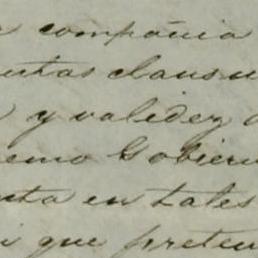 compañia
clausu
y validez
emo Gobiern
ta en tales
i que preten